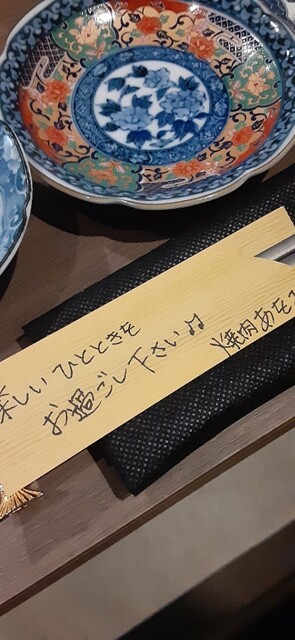 楽しいひとときを
お過ごし下さい♪
焼肉あを